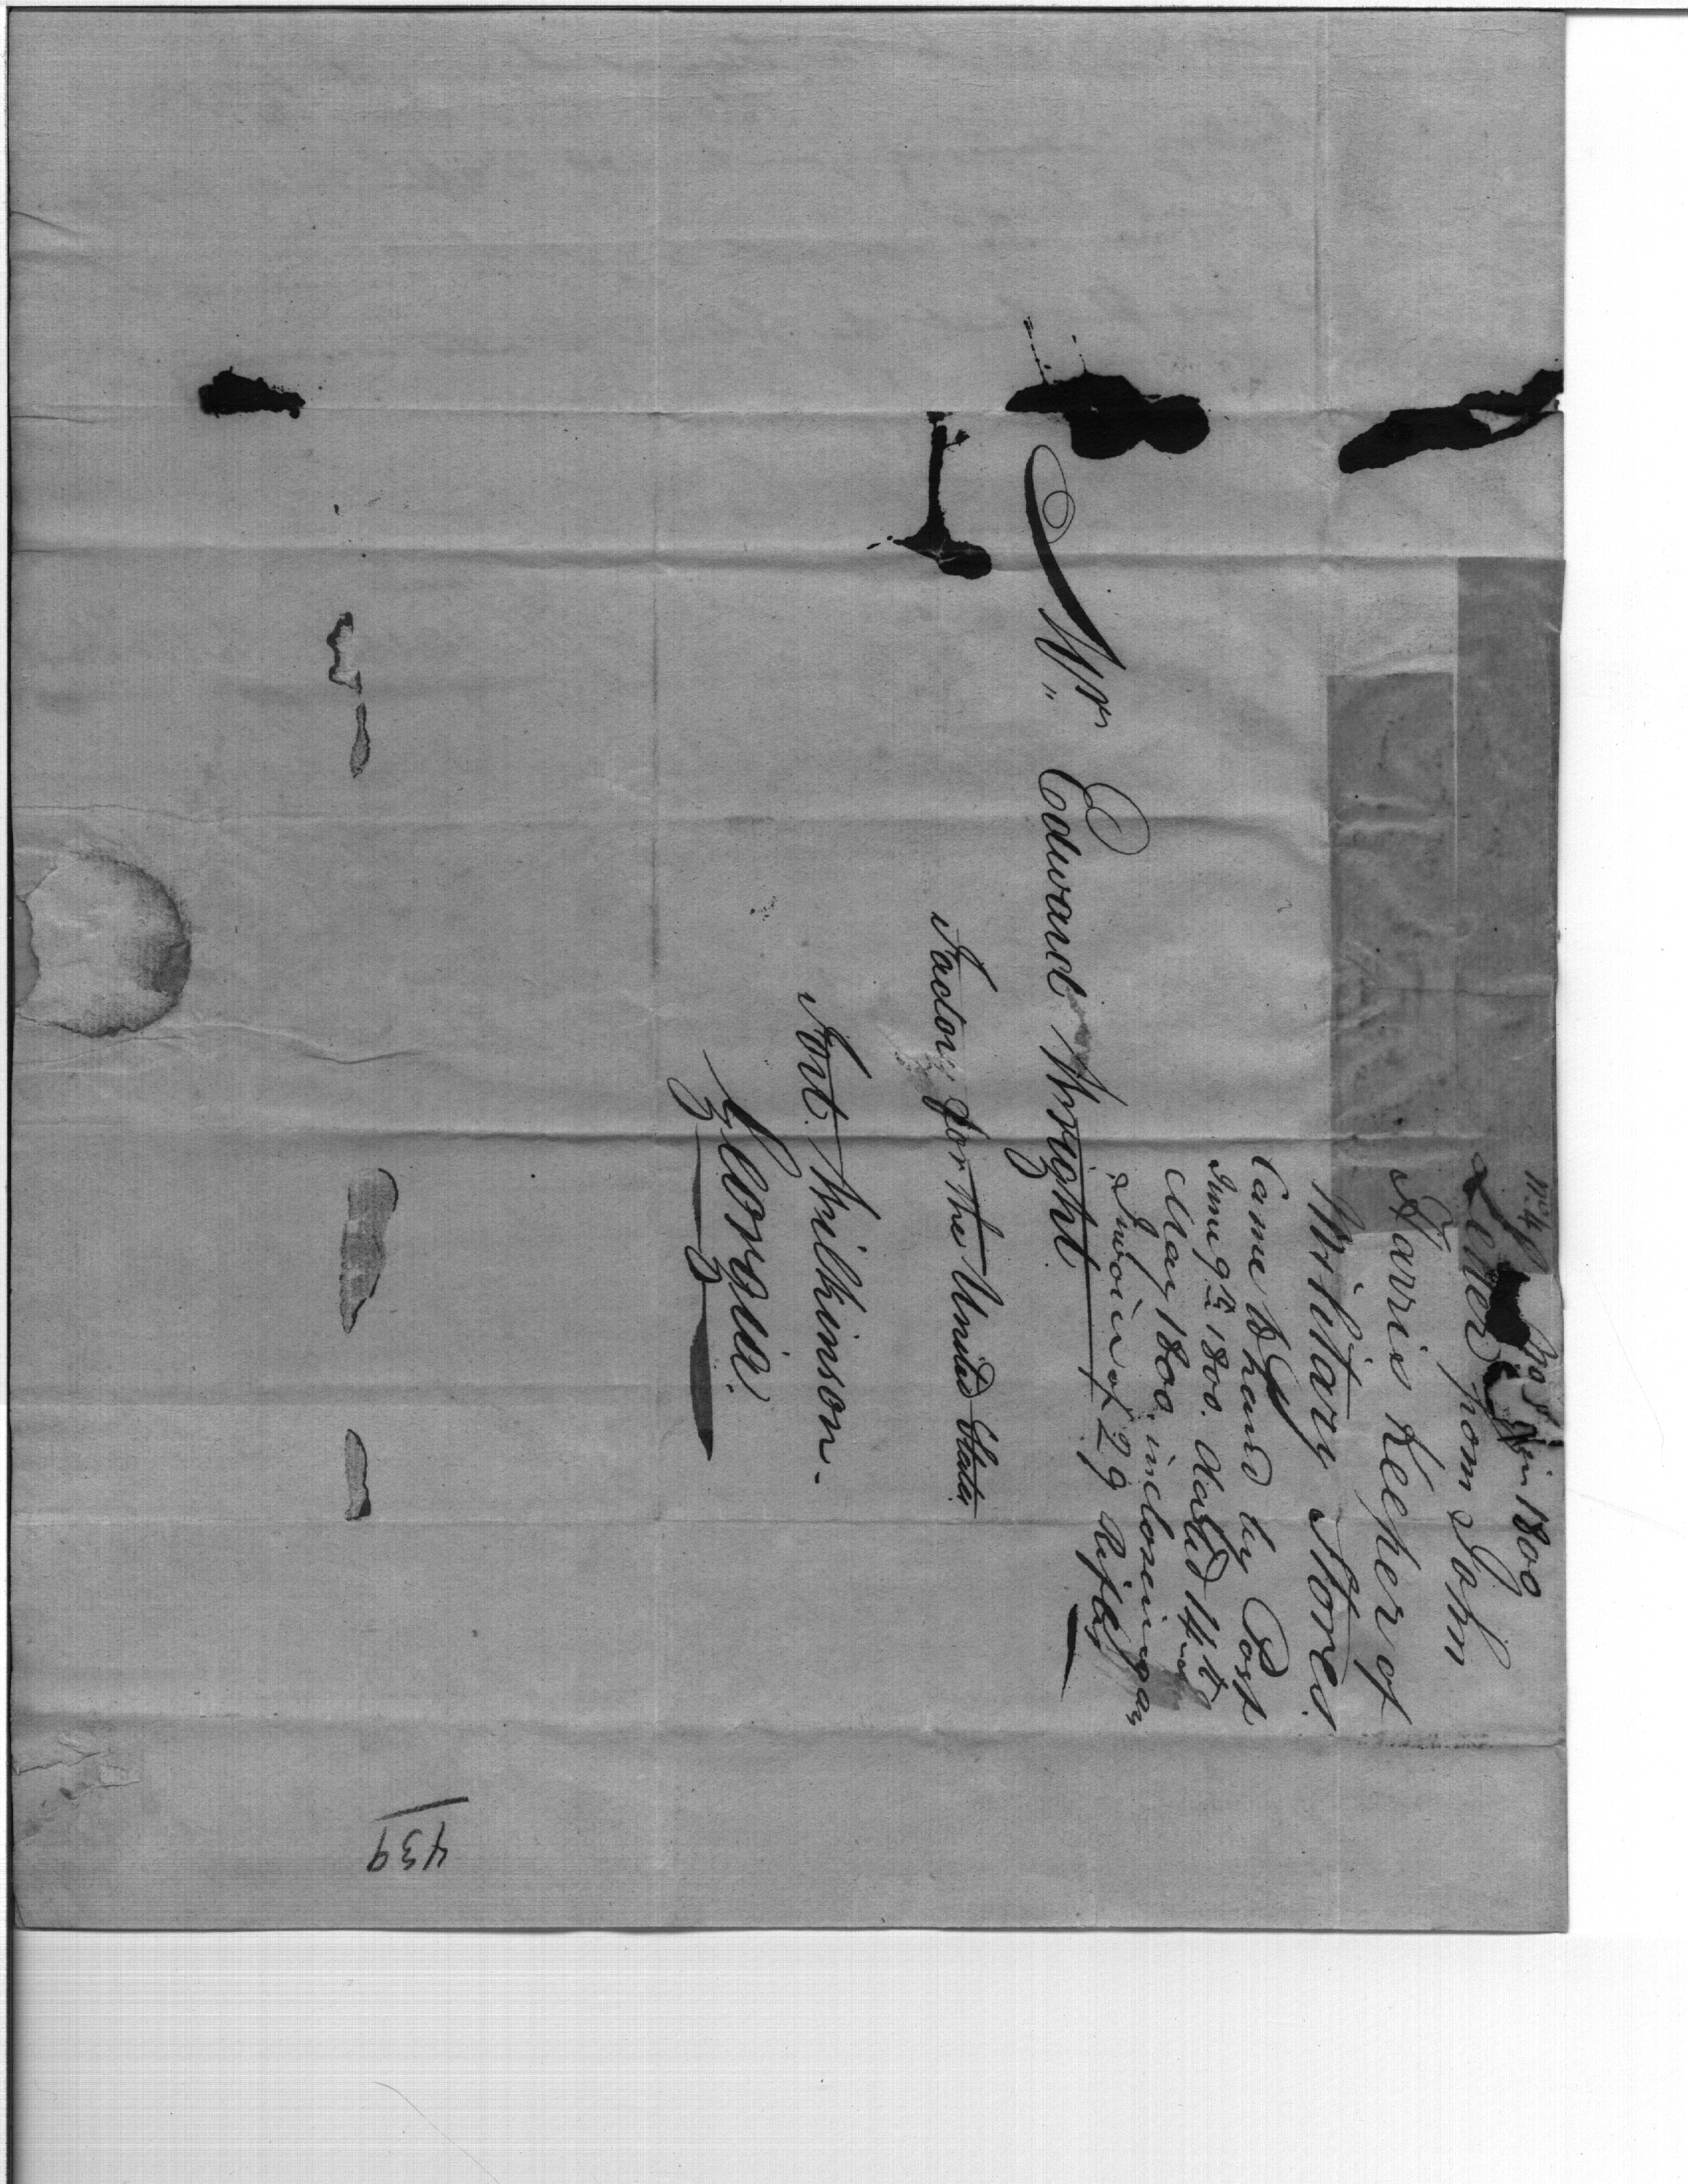 No. 4
No 8 in 1800
Letter from John
Harris Keeper of
Military Stores.
Came to hand by Post
June 9th 1800. dated 14th
May 1800. inclosing an
Invoice of 29 Rifles
Mr. Edward Wright
Factor, for the United States
Fort Wilkinson.
Georgia.
439